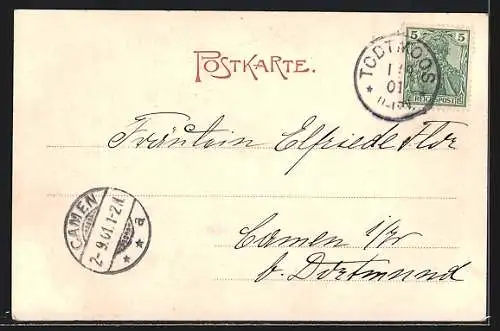 POSTKARTE.
5 5
REICHSPOST
TODTMOOS
01
Fräulein Elfriede Flor
CAMEN
2-9.01.1-2N.
* * a
Camen i/W
b. Dortmund